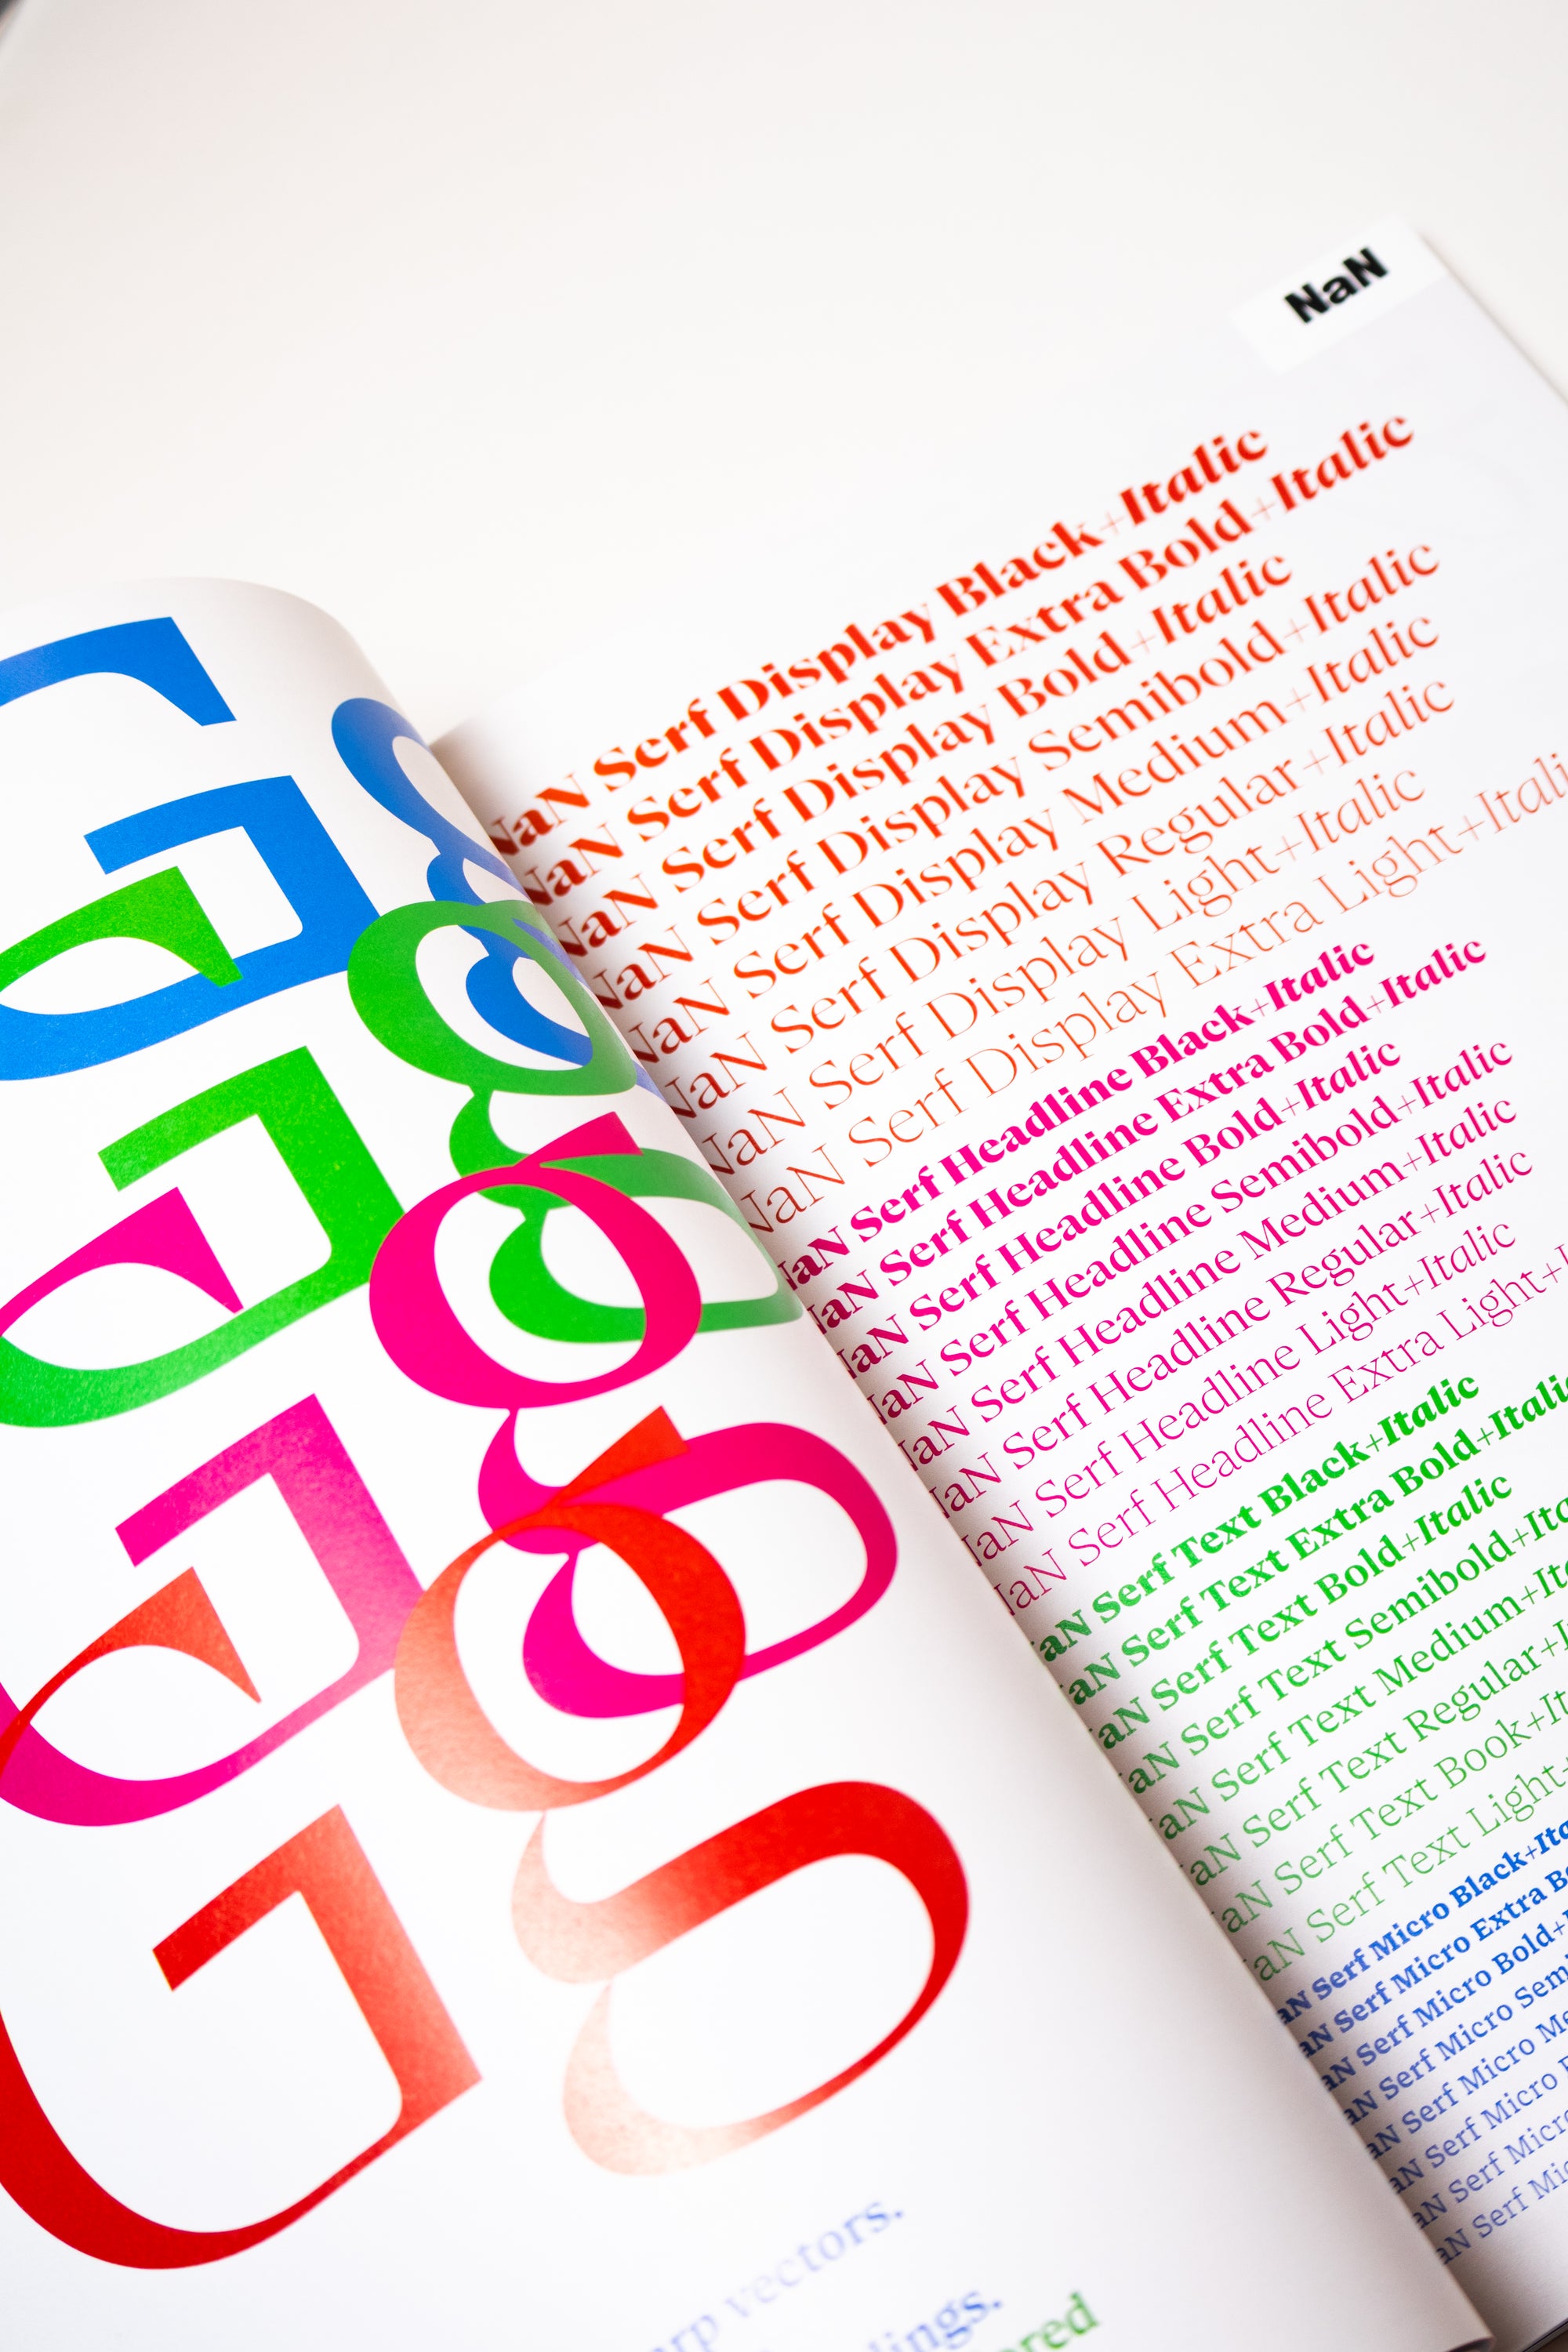 G g
G g
G g
G g
vectors.
NaN
NaN Serf Display Black+Italic
NaN Serf Display Extra Bold+Italic
NaN Serf Display Bold+Italic
NaN Serf Display Semibold+Italic
NaN Serf Display Medium+Italic
NaN Serf Display Regular+Italic
NaN Serf Display Light+Italic
NaN Serf Display Extra Light+Itali
NaN Serf Headline Black+Italic
NaN Serf Headline Extra Bold+Italic
NaN Serf Headline Bold+Italic
NaN Serf Headline Semibold+Italic
NaN Serf Headline Medium+Italic
NaN Serf Headline Regular+Italic
NaN Serf Headline Light+Italic
NaN Serf Headline Extra Light+I
aN Serf Text Black+Italic
aN Serf Text Extra Bold+Italic
aN Serf Text Bold+Italic
aN Serf Text Semibold+Ita
aN Serf Text Medium+Ita
aN Serf Text Regular+I
aN Serf Text Book+Ita
aN Serf Text Light+
aN Serf Micro Black+Ita
aN Serf Micro Extra Bo
aN Serf Micro Bold+I
aN Serf Micro Semi
aN Serf Micro Me
aN Serf Micro
aN Serf Micro
aN Serf Mic